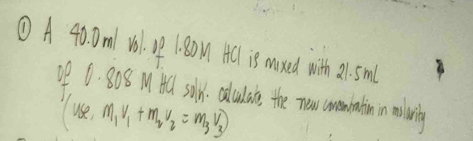 ① A 40.0 ml vol. of 1.80M HCl is mixed with 21.5 mL
of 0.808 M HCl soln. calculate the new concentration in molarity
(use, m₁v₁ + m₂v₂ = m₃v₃)